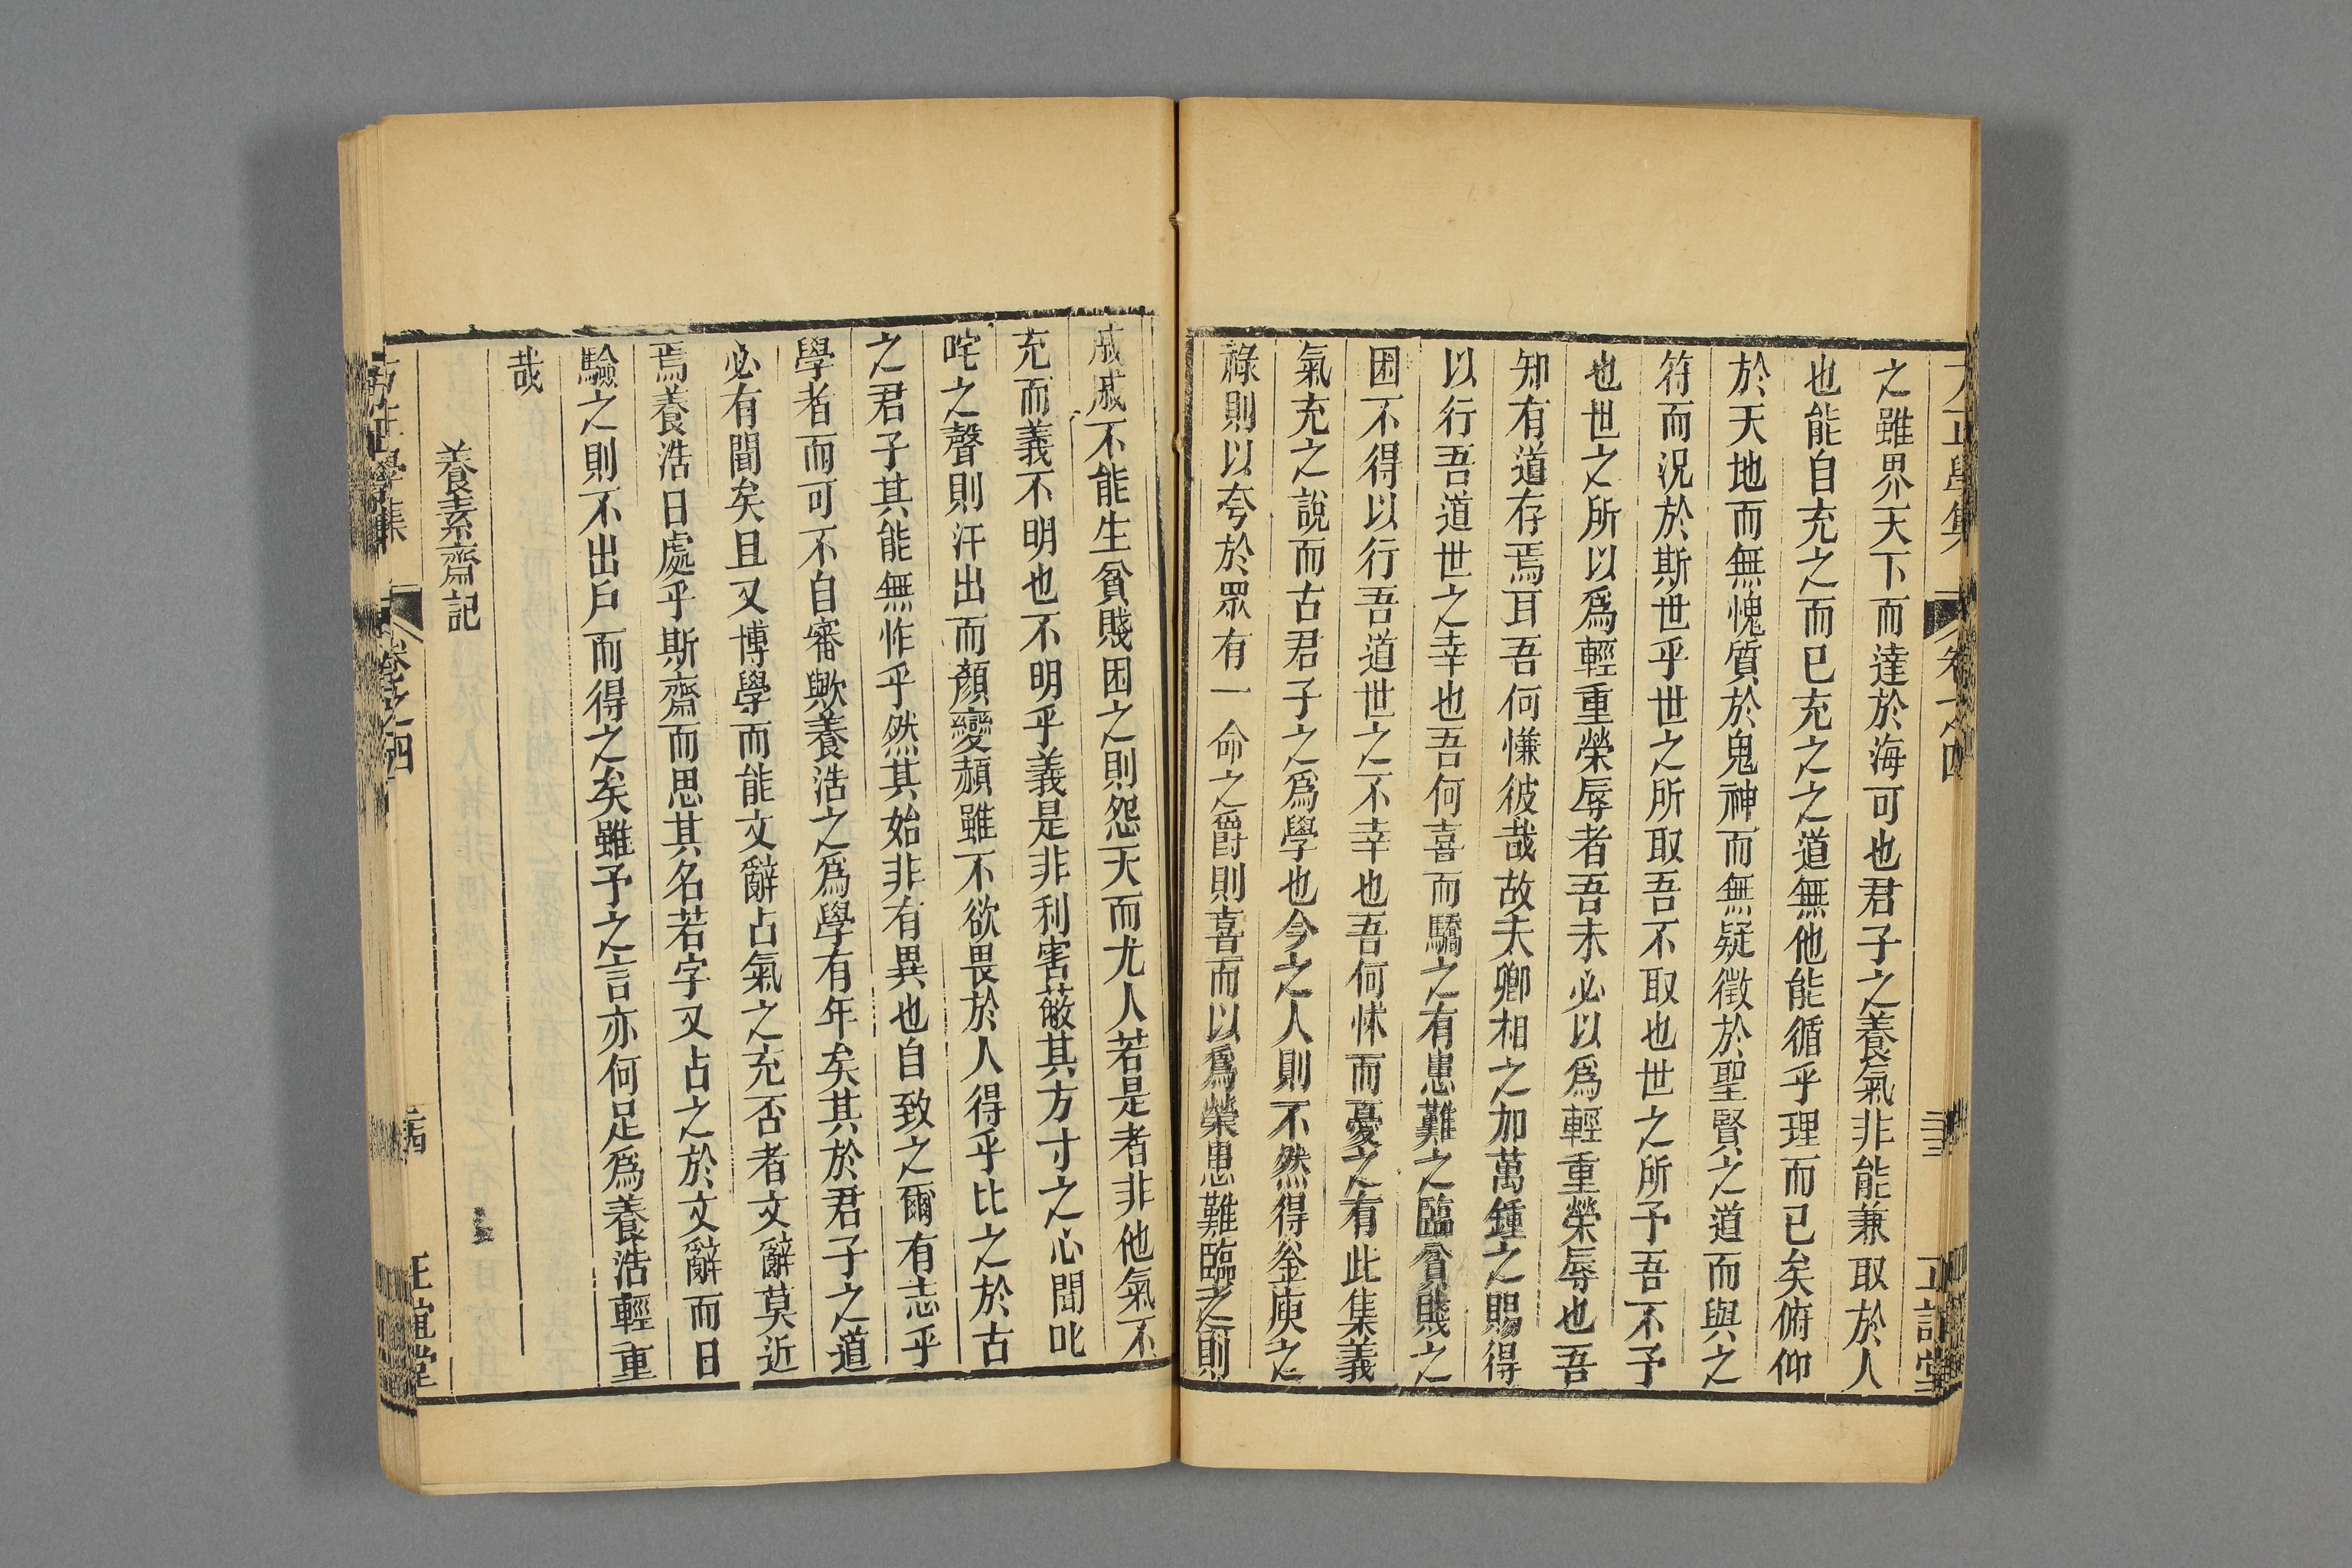 之雖界天下而達於海可也君子之養氣非能兼取於人
也能自充之而已充之之道無他能循乎理而已矣俯仰
於天地而無愧質於鬼神而無疑徵於聖賢之道而與之
符而況於斯世乎世之所取吾不取也世之所予吾不予
也世之所以爲輕重榮辱者吾未必以爲輕重榮辱也吾
知有道存焉耳吾何慊彼哉故夫卿相之加萬鍾之賜得
以行吾道世之幸也吾何喜而驕之有患難之臨貧賤之
困不得以行吾道世之不幸也吾何怵而憂之有此集義
氣充之說而古君子之爲學也今之人則不然得釜庾之
祿則以夸於眾有一命之爵則喜而以爲榮患難臨之則
戚戚不能生貧賤困之則怨天而尤人若是者非他氣不
充而義不明也不明乎義是非利害蔽其方寸之心聞叱
咤之聲則汗出而顏變頳雖不欲畏於人得乎比之於古
之君子其能無怍乎然其始非有異也自致之爾有志乎
學者而可不自審歟養浩之爲學有年矣其於君子之道
必有聞矣且又博學而能文辭占氣之充否者文辭莫近
焉養浩日處乎斯齋而思其名若字又占之於文辭而日
驗之則不出戶而得之矣雖予之言亦何足爲養浩輕重
哉
養素齋記
方正學集
卷之四
正誼堂